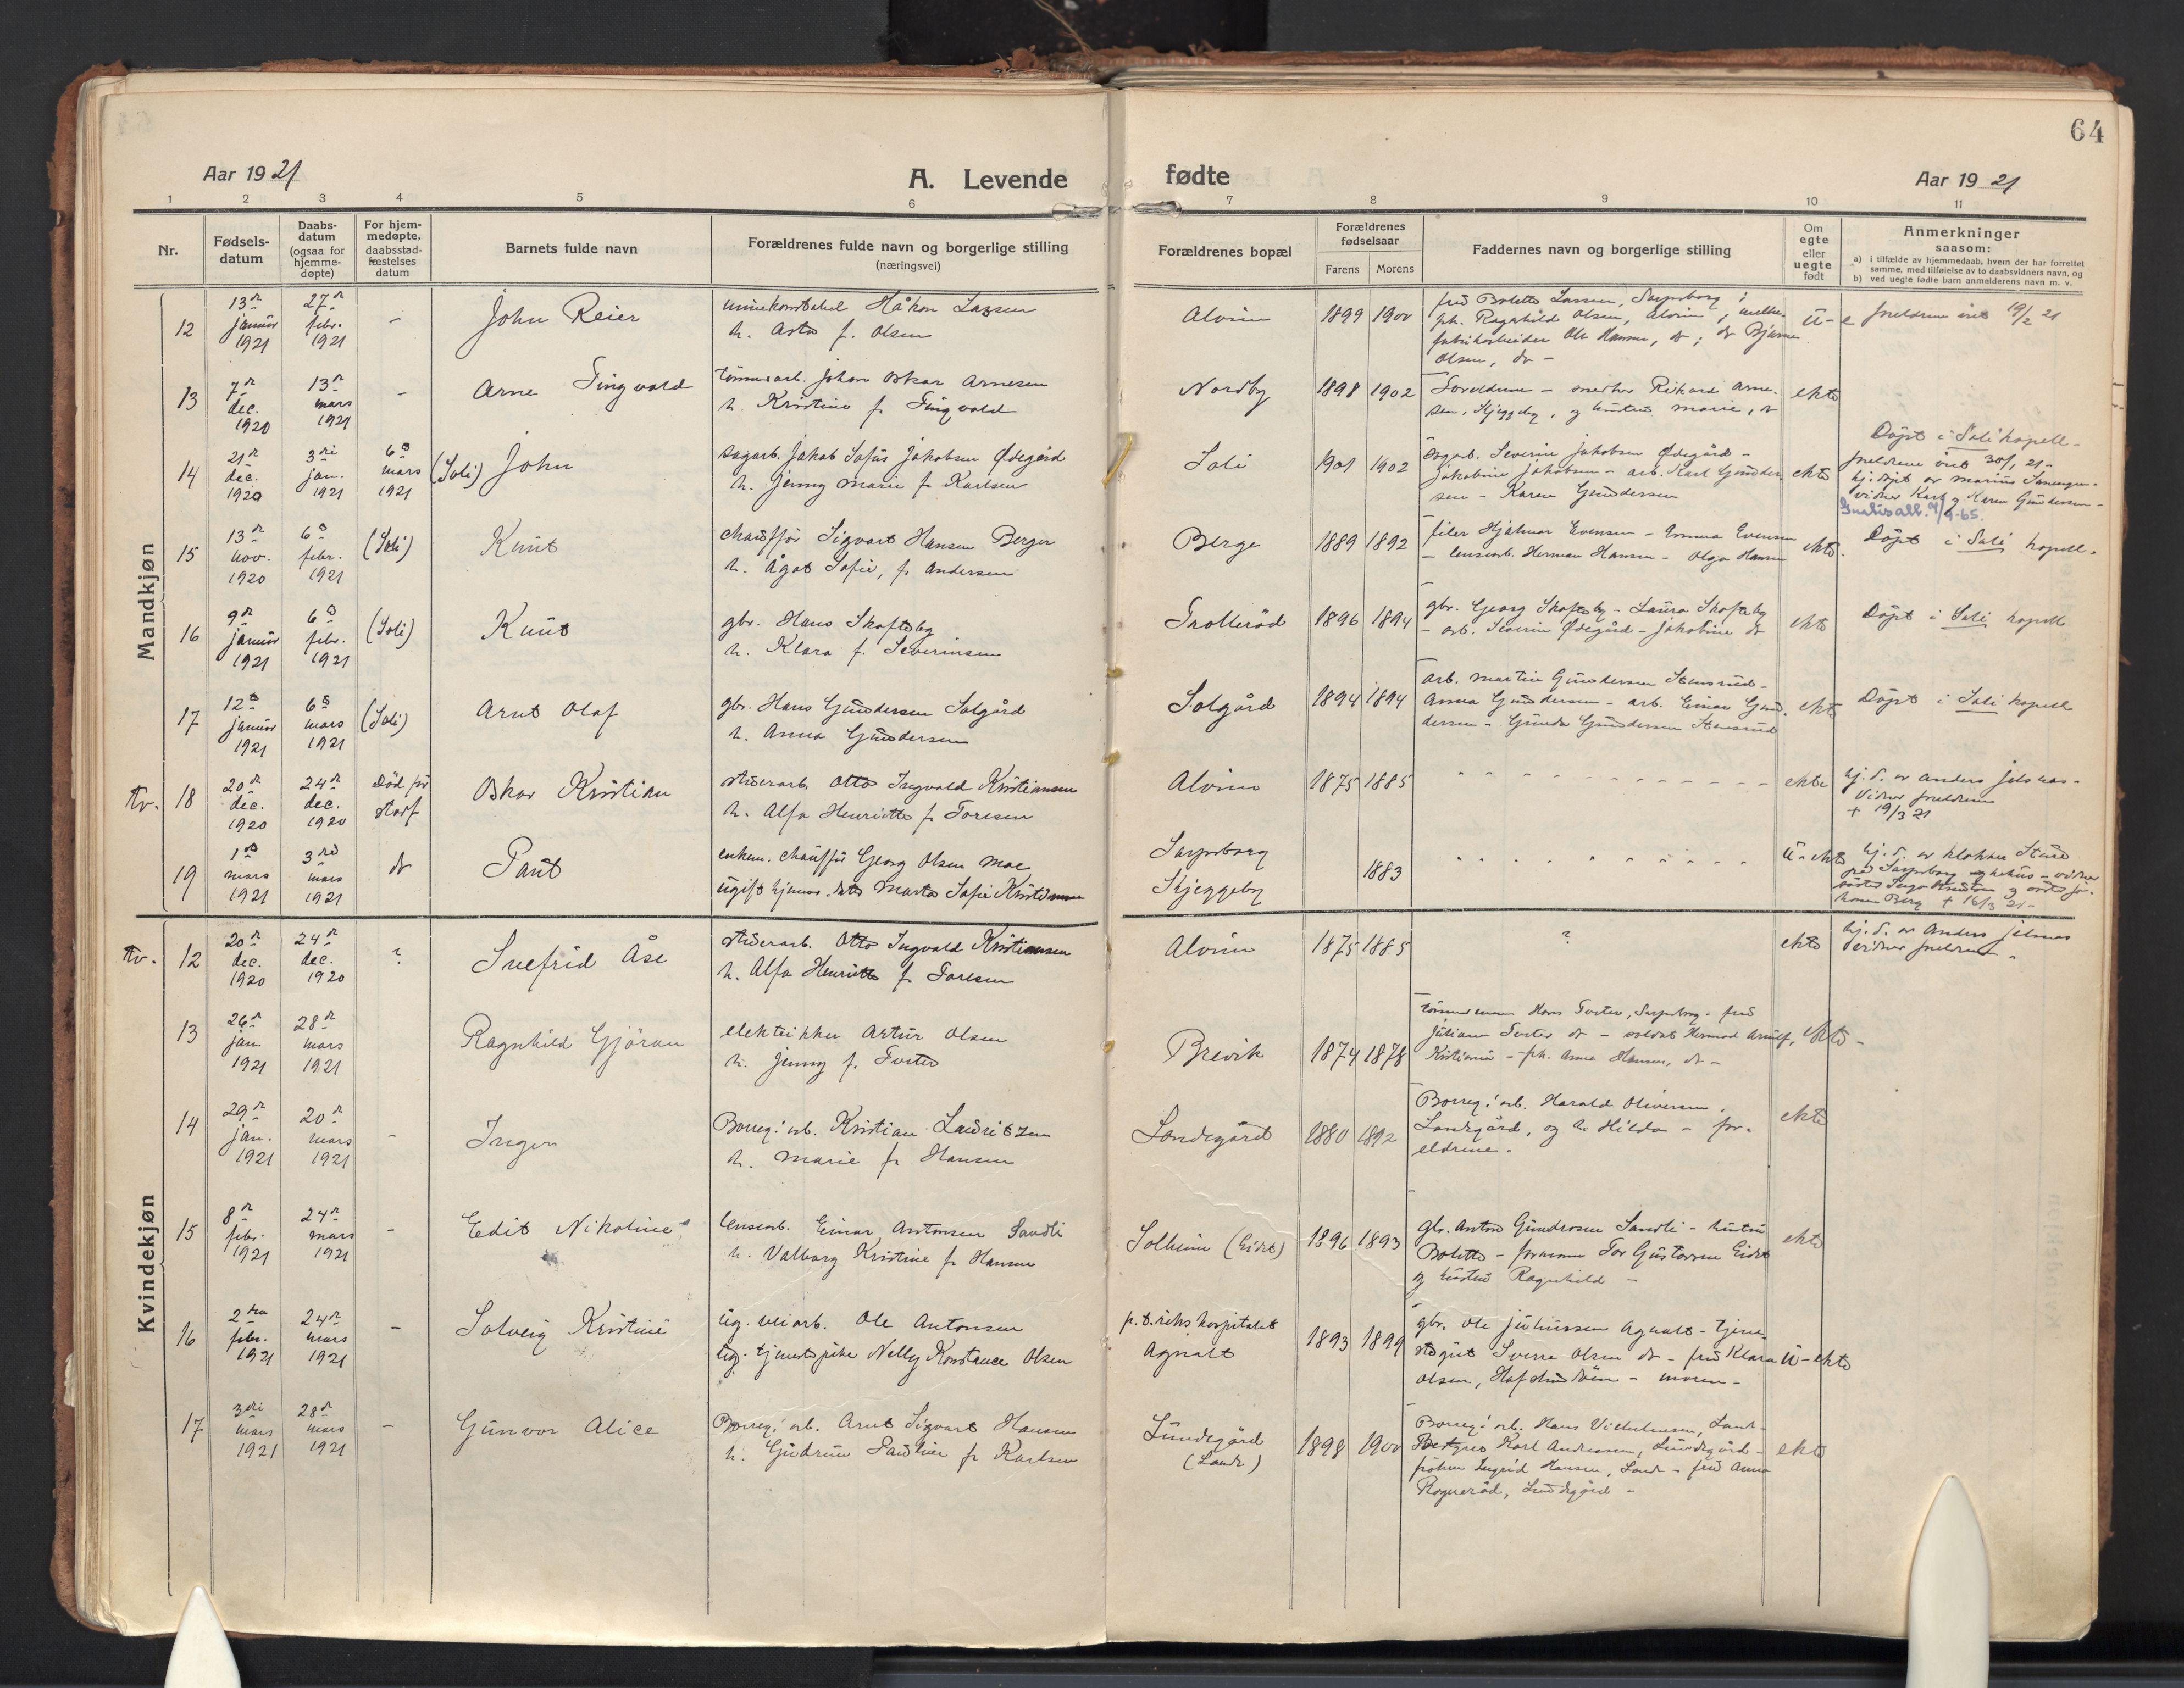 64
Aar 1921
A. Levende
fødte
Aar 1921
1 2 3 4 5 6 7 8 9 10 11
Nr.
Fødsels-
datum
Daabs-
datum
(ogsaa for
hjemme-
døpte)
For hjem-
medøpte,
daabsstad-
fæstelses
datum
Barnets fulde navn
Forældrenes fulde navn og borgerlige stilling
(næringsvei)
Forældrenes bopæl
Forældrenes
fødselsaar
Farens Morens
Faddernes navn og borgerlige stilling
Om
egte
eller
uegte
født
Anmerkninger
saasom:
a) i tilfælde av hjemmedaab, hvem der har forrettet
samme, med tilføielse av to daabsvidners navn, og
b) ved uegte fødte barn anmelderens navn m. v.
Mandkjøn
12
13de
januar
1921
27de
febr.
1921
-
John Reier
Håkon Lassen
h. Asta f. Olsen
Alvim
1899 1900
fru Bolette Lassen, Sarpsborg;
pk. Ragnhild Olsen, Alvim;
fabrikarbeider Ole Hansen, do; do Bjarne
Olsen, do -
U-e
foreldrene 19/2 21
13
7de
dec.
1920
13de
mars
1921
-
Arne Tingvald
tømmerarb. Johan Oskar Arnesen
h. Kristine f. Tingvald
Nordby
1898 1902
Foreldrene - snekker Rikard Arne-
sen, Skjeggeby, og hustru Marie, do
ekte
14
21de
dec.
1920
3die
jan.
1921
6te
mars
1921
(Soli)
John
sagarb. Jakob Sofus Jakobsen Ødegård
h. Jenny Marie f. Karlsen
Soli
1901 1902
sagarb. Severin Jakobsen Ødegård -
Jakobine Jakobsen - arb. Karl Gunder-
sen - Karen Gundersen
ekte
Døpt i Soli kapell -
foreldrene 30/1 21 -
hj. døpt av Marius
vidner Karl og Karen Gundersen -
15
13de
nov.
1920
6te
febr.
1921
(Soli)
Knut
chauffør Sigvart Hansen Berger
h. Ågot Sofie, f. Andersen
Berge
1889 1892
filer Hjalmar Evensen - Emma Evensen
- lensearb. Herman Hansen - Olga Hansen
ekte.
Døpt i Soli kapell.
16
9de
januar
1921
6te
febr.
1921
(Soli)
Knut
gbr. Hans Skofteby
h. Klara f. Severinsen
Trollerød
1896 1894
gbr. Georg Skofteby - Laura Skofteby
- arb. Severin Ødegård - Jakobine do
ekte
Døpt i Soli kapell
17
12te
januar
1921
6te
mars
1921
(Soli)
Arnt Olaf
gbr. Hans Gundersen Solgård
h. Anna Gundersen
Solgård
1894 1894
arb. Martin Gundersen Stensrud -
Anna Gundersen - arb. Einar Gun-
dersen - Gunda Gundersen Stensrud
ekte
Døpt i Soli kapell
Tv. 18
20de
dec.
1920
24de
dec.
1920
Død før
stadf
Oskar Kristian
Otto Ingvald Kristiansen
h. Alfa Henriette f. Toresen
Alvim
1875 1885
" " " " " " " " "
ekte
hj. d. av Anders Jelsnes -
Vidner foreldrene
+ 19/3 21
19
1ste
mars
1921
3die
mars
1921
do
Paul
enkem. chauffør Georg Olsen Moe
ugift hjemmev. datter Marta Sofie Kristiansen
Sarpsborg
Skjeggeby
1883
" " " " " " " " "
U-ekte
hj. d. av klokker
på Sarpsborg sykehus - vidner
+ 16/3 21 -
Kvindekjøn
Tv. 12
20de
dec.
1920
24de
dec.
1920
?
Snefrid Åse
Otto Ingvald Kristiansen
h. Alfa Henriette f. Toresen
Alvim
1875 1885
?
ekte
hj. d. av Anders Jelsnes
vidner foreldrene -
13
26de
jan
1921
28de
mars
1921
Ragnhild Gjöran
elektrikker Artur Olsen
h. Jenny f. Tveter
Brevik
1874 1878
tømmermann Hans Tveter, Sarpsborg - fru
Juliane Tveter do - soldat Herman Arnulf,
Kristiania - pk. Anna Hansen, do -
ekte -
14
29de
jan.
1921
20de
mars
1921
-
Inger
Borreg. arb. Kristian Lauritzen
h. Marie f. Hansen
Landegård
1880 1892
Borreg. arb. Harald Oliversen,
Landegård, og h. Hilda - for-
eldrene.
ekte
15
8de
febr.
1921
24de
mars
1921
-
Edit Nikoline
lensearb. Einar Antonsen Sandli
h. Valborg Kristine f. Hansen
Solheim (Eidet)
1896 1893
gbr. Anton Gundersen Sandli - hustru
Bolette - formann Tor Gustavsen Eidet
og hustru Ragnhild -
ekte
16
2den
febr.
1921
24de
mars
1921
-
Solveig Kristine
ug. veiarb. Ole Antonsen
ug. tjenestepike Nelly Konstance Olsen
p.t. rikshospitalet
Agnalt
1893 1899
gbr. Ole Juliussen Agnalt - tjene-
stegut Sverre Olsen do - fru Klara
Olsen, Hafslundsøen - moren -
U-ekte
17
3die
mars
1921
28de
mars
1921
-
Gunvor Alice
Borreg. arb. Arnt Sigvart Hansen
h. Gudrun Pauline f. Karlsen
Lundegård
(Lande)
1898 1900
Borreg. arb. Hans Vilhelmsen, Lande -
Karl Andreassen, Lundegård -
frøken Ingrid Hansen, Lande - fru Anna
Rognerød, Lundegård -
ekte